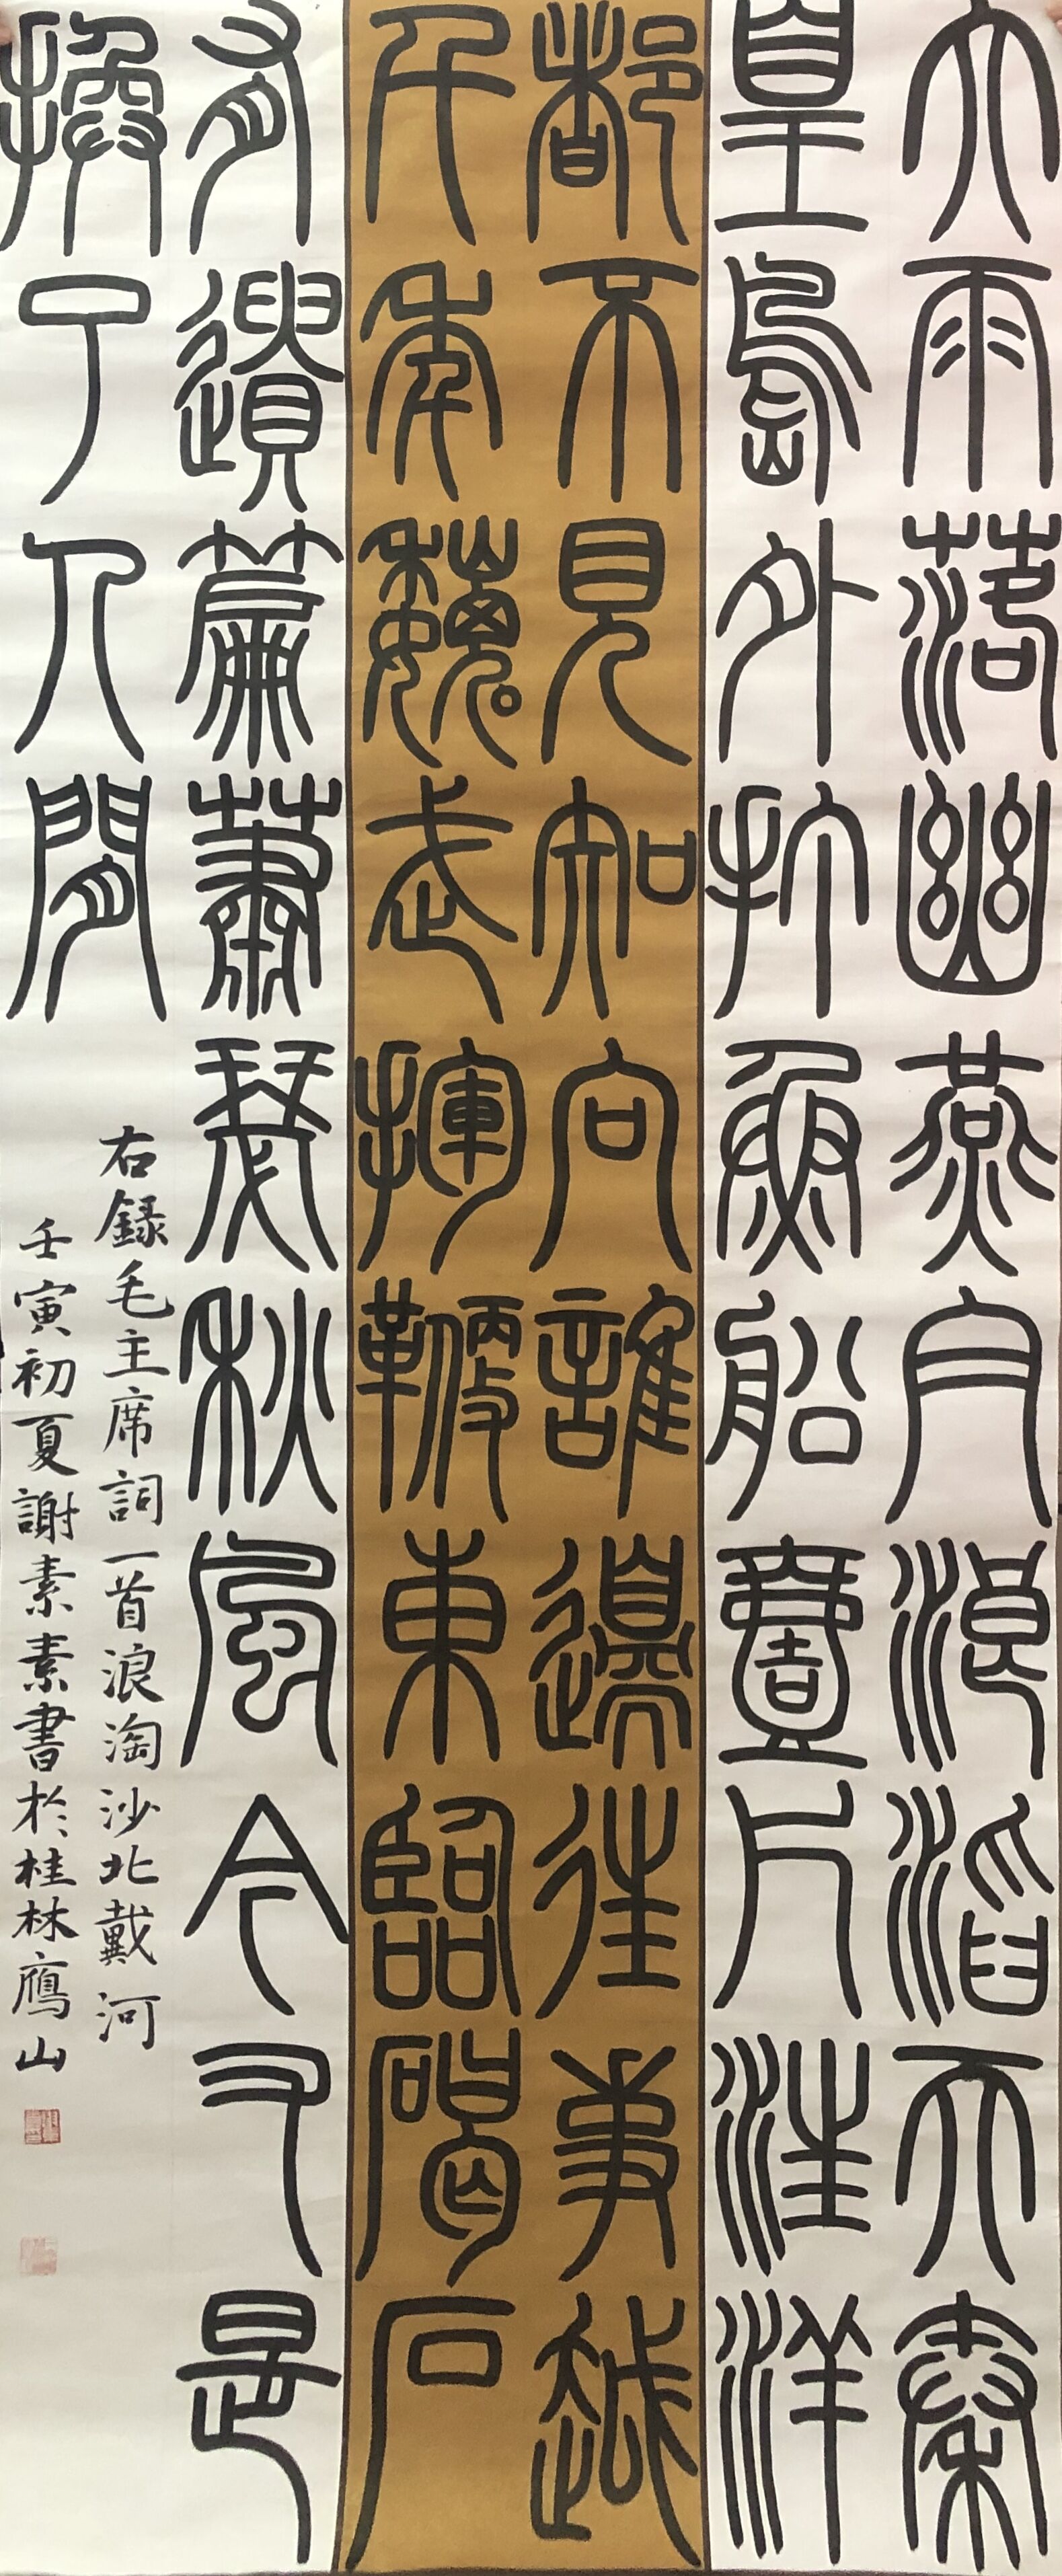 大雨落幽燕白浪滔天秦
皇島外打魚船壹片汪洋
都不見知向誰邊往事越
千年魏武揮鞭東臨碣石
有遺篇蕭瑟秋風今又是
換了人間
右録毛主席詞一首浪淘沙北戴河
壬寅初夏謝素素書於桂林鴈山